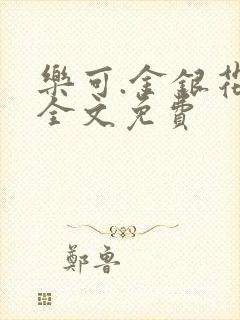 樂可.金銀花
全文免費
鄭魯